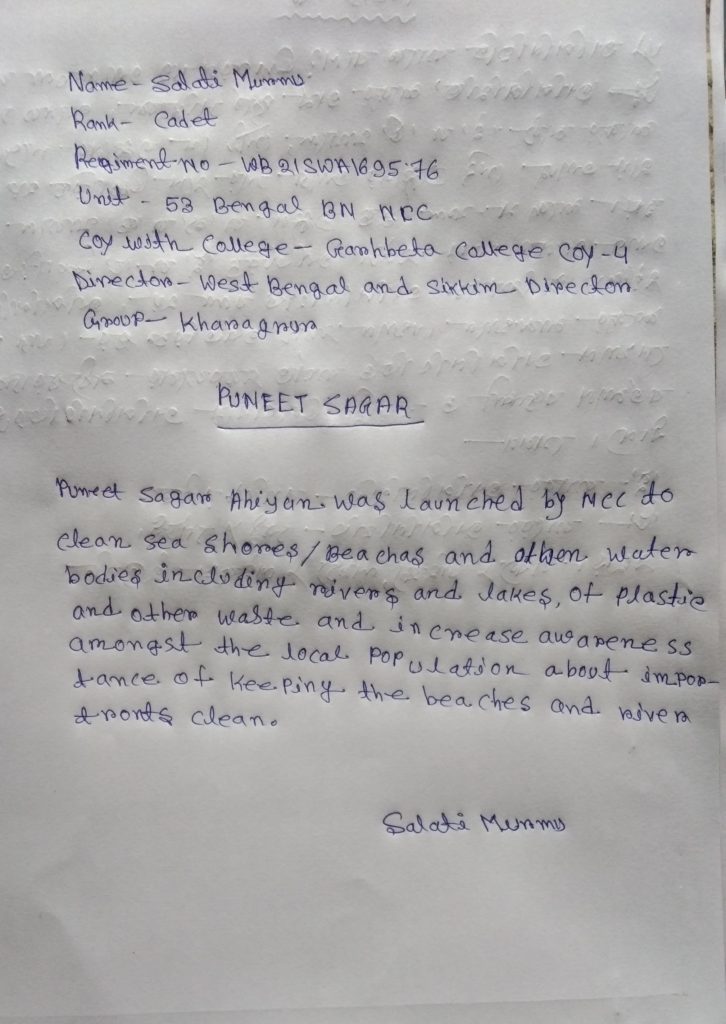 Name - Salati Murmu
Rank - Cadet
Regiment no - WB21SWA169576
Unit - 53 Bengal BN NCC
Coy with College - Garhbeta College Coy-4
Director - West Bengal and Sikkim Director
Group - Kharagpur
PUNEET SAGAR
Puneet Sagar Ahiyan was launched by NCC to
clean sea shores/beachas and other water
bodies including rivers and lakes, of plastic
and other waste and increase awareness
amongst the local population about impor-
tance of keeping the beaches and river
fronts clean.
Salati Murmu